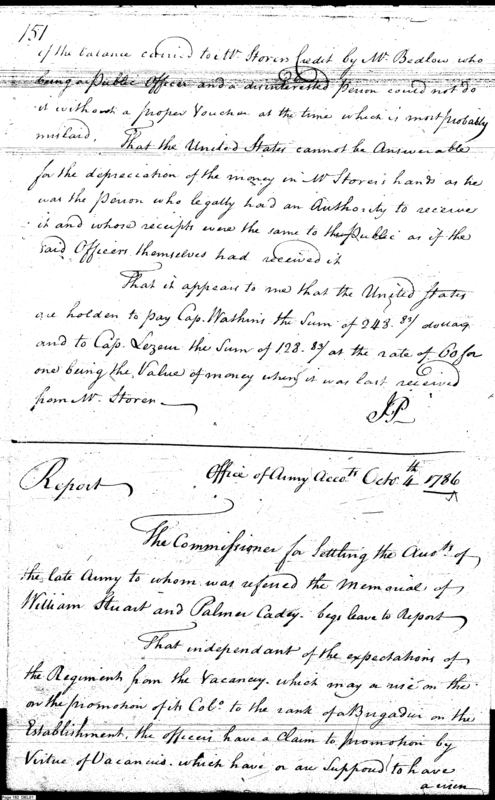 151
of the balance carried to Mr Storers Credit by Mr Bedlow who
being a Public Officer and a disinterested Person could not do
it without a proper Voucher at the time which is most probably
mislaid.
That the United States cannot be Answerable
for the depreciation of the money in Mr Storer's hands as he
was the Person who legally had an Authority to receive
it and whose receipts were the same to the Public as if the
said Officers themselves had received it
That it appears to me that the United States
are holden to pay Cap. Watkins the Sum of 243.83/ dollars
and to Cap. the Sum of 128.83/ at the rate of 60 for
one being the Value of money when it was last received
from Mr. Storer
JP
Report
Office of Army Accots Octo 4th 1786
The Commissioner for Settling the Accots of
the late Army to whom was referred the Memorial of
William Stuart and Palmer Cadey. begs leave to Report
That independant of the expectations of
the Regiment from the Vacancy which may arise on the
on the promotion of its Colo to the rank of Brigadier on the
Establishment, the officers have a Claim to promotion by
Virtue of Vacancies which have or are Supposed to have
arisen